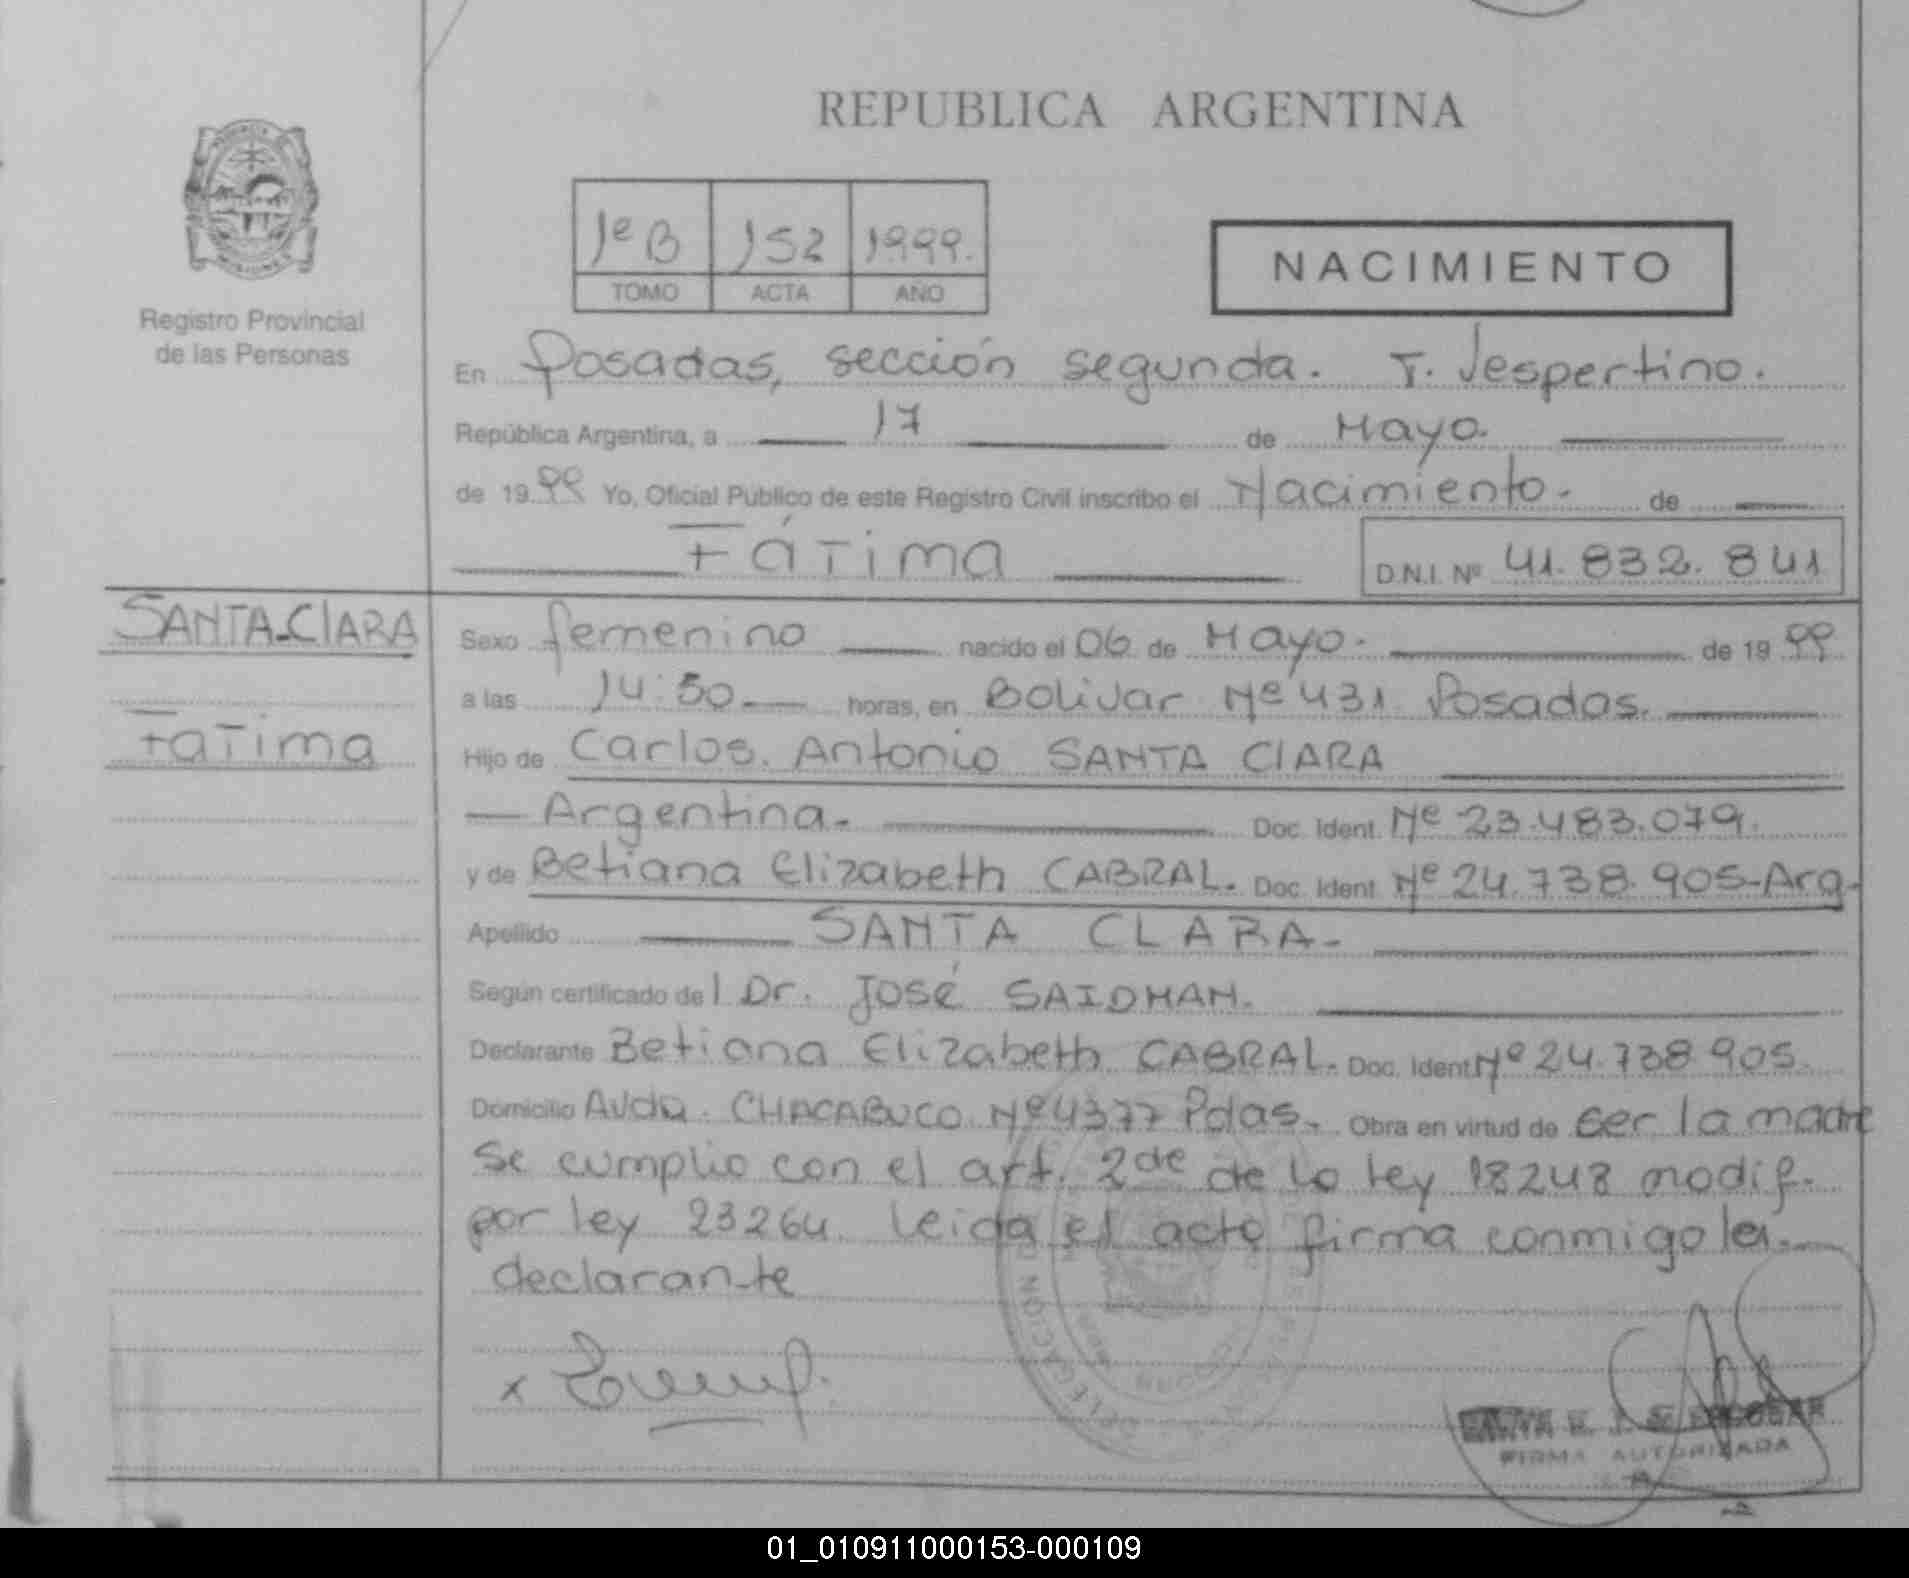 REPUBLICA ARGENTINA
PROVINCIA
MISIONES
Registro Provincial
de las Personas
1º B 152 1999.
TOMO ACTA AÑO
NACIMIENTO
En Posadas, sección segunda. T. Vespertino.
República Argentina, a 17 de Mayo.
de 19 99 Yo, Oficial Público de este Registro Civil inscribo el Nacimiento. de
Fátima
D.N.I. Nº 41.832.841
SANTA-ClARA
Fatima
Sexo femenino nacido el 06 de Mayo. de 19 99
a las 14:50 horas, en Bolivar Nº 431 Posadas.
Hijo de Carlos. Antonio SANTA ClARA
Argentina. Doc. Ident. Nº 23.483.079.
y de Betiana Elizabeth CABRAL. Doc. Ident. Nº 24.738.905-Arg.
Apellido SANTA CLARA-
Según certificado del Dr. José SAIDMAN.
Declarante Betiana Elizabeth CABRAL. Doc. Ident. Nº 24.738.905.
Domicilio Avda. CHACABUCO Nº 4377 Pdas. Obra en virtud de ser la madre
Se cumplio con el art. 2de de la ley 18248 modif.
por ley 23264. leida el acta firma conmigo la.
declarante
x
DELEGACION
FIRMA AUTORIZADA
01_010911000153-000109